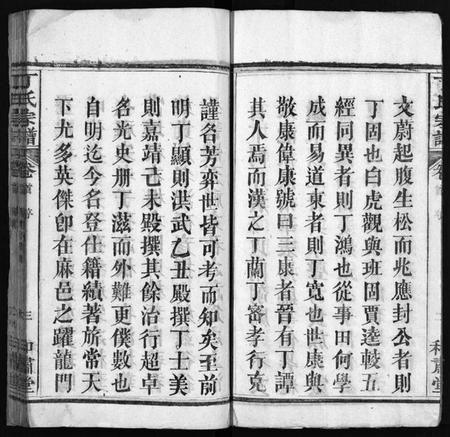 文蔚起腹生松而兆應封公者則
丁固也白虎觀與班固賈逵較五
經同異者則丁鴻也從事田何學
成而易道東者則丁寬也世康與
敬康偉康號曰三康者晉有丁譚
其人焉而漢之丁蘭丁密孝行克
丁氏宗譜
卷首
序
和肅堂
謹名芳奕世皆可考而知矣至前
明丁顯則洪武乙丑殿撰丁士美
則嘉靖己未殿撰其餘治行超卓
名光史册丁滋而外難更僕數也
自明迄今名登仕籍績著旂常天
下尤多英傑卽在麻邑之躍龍門
丁氏宗譜
卷首
序
三
和肅堂